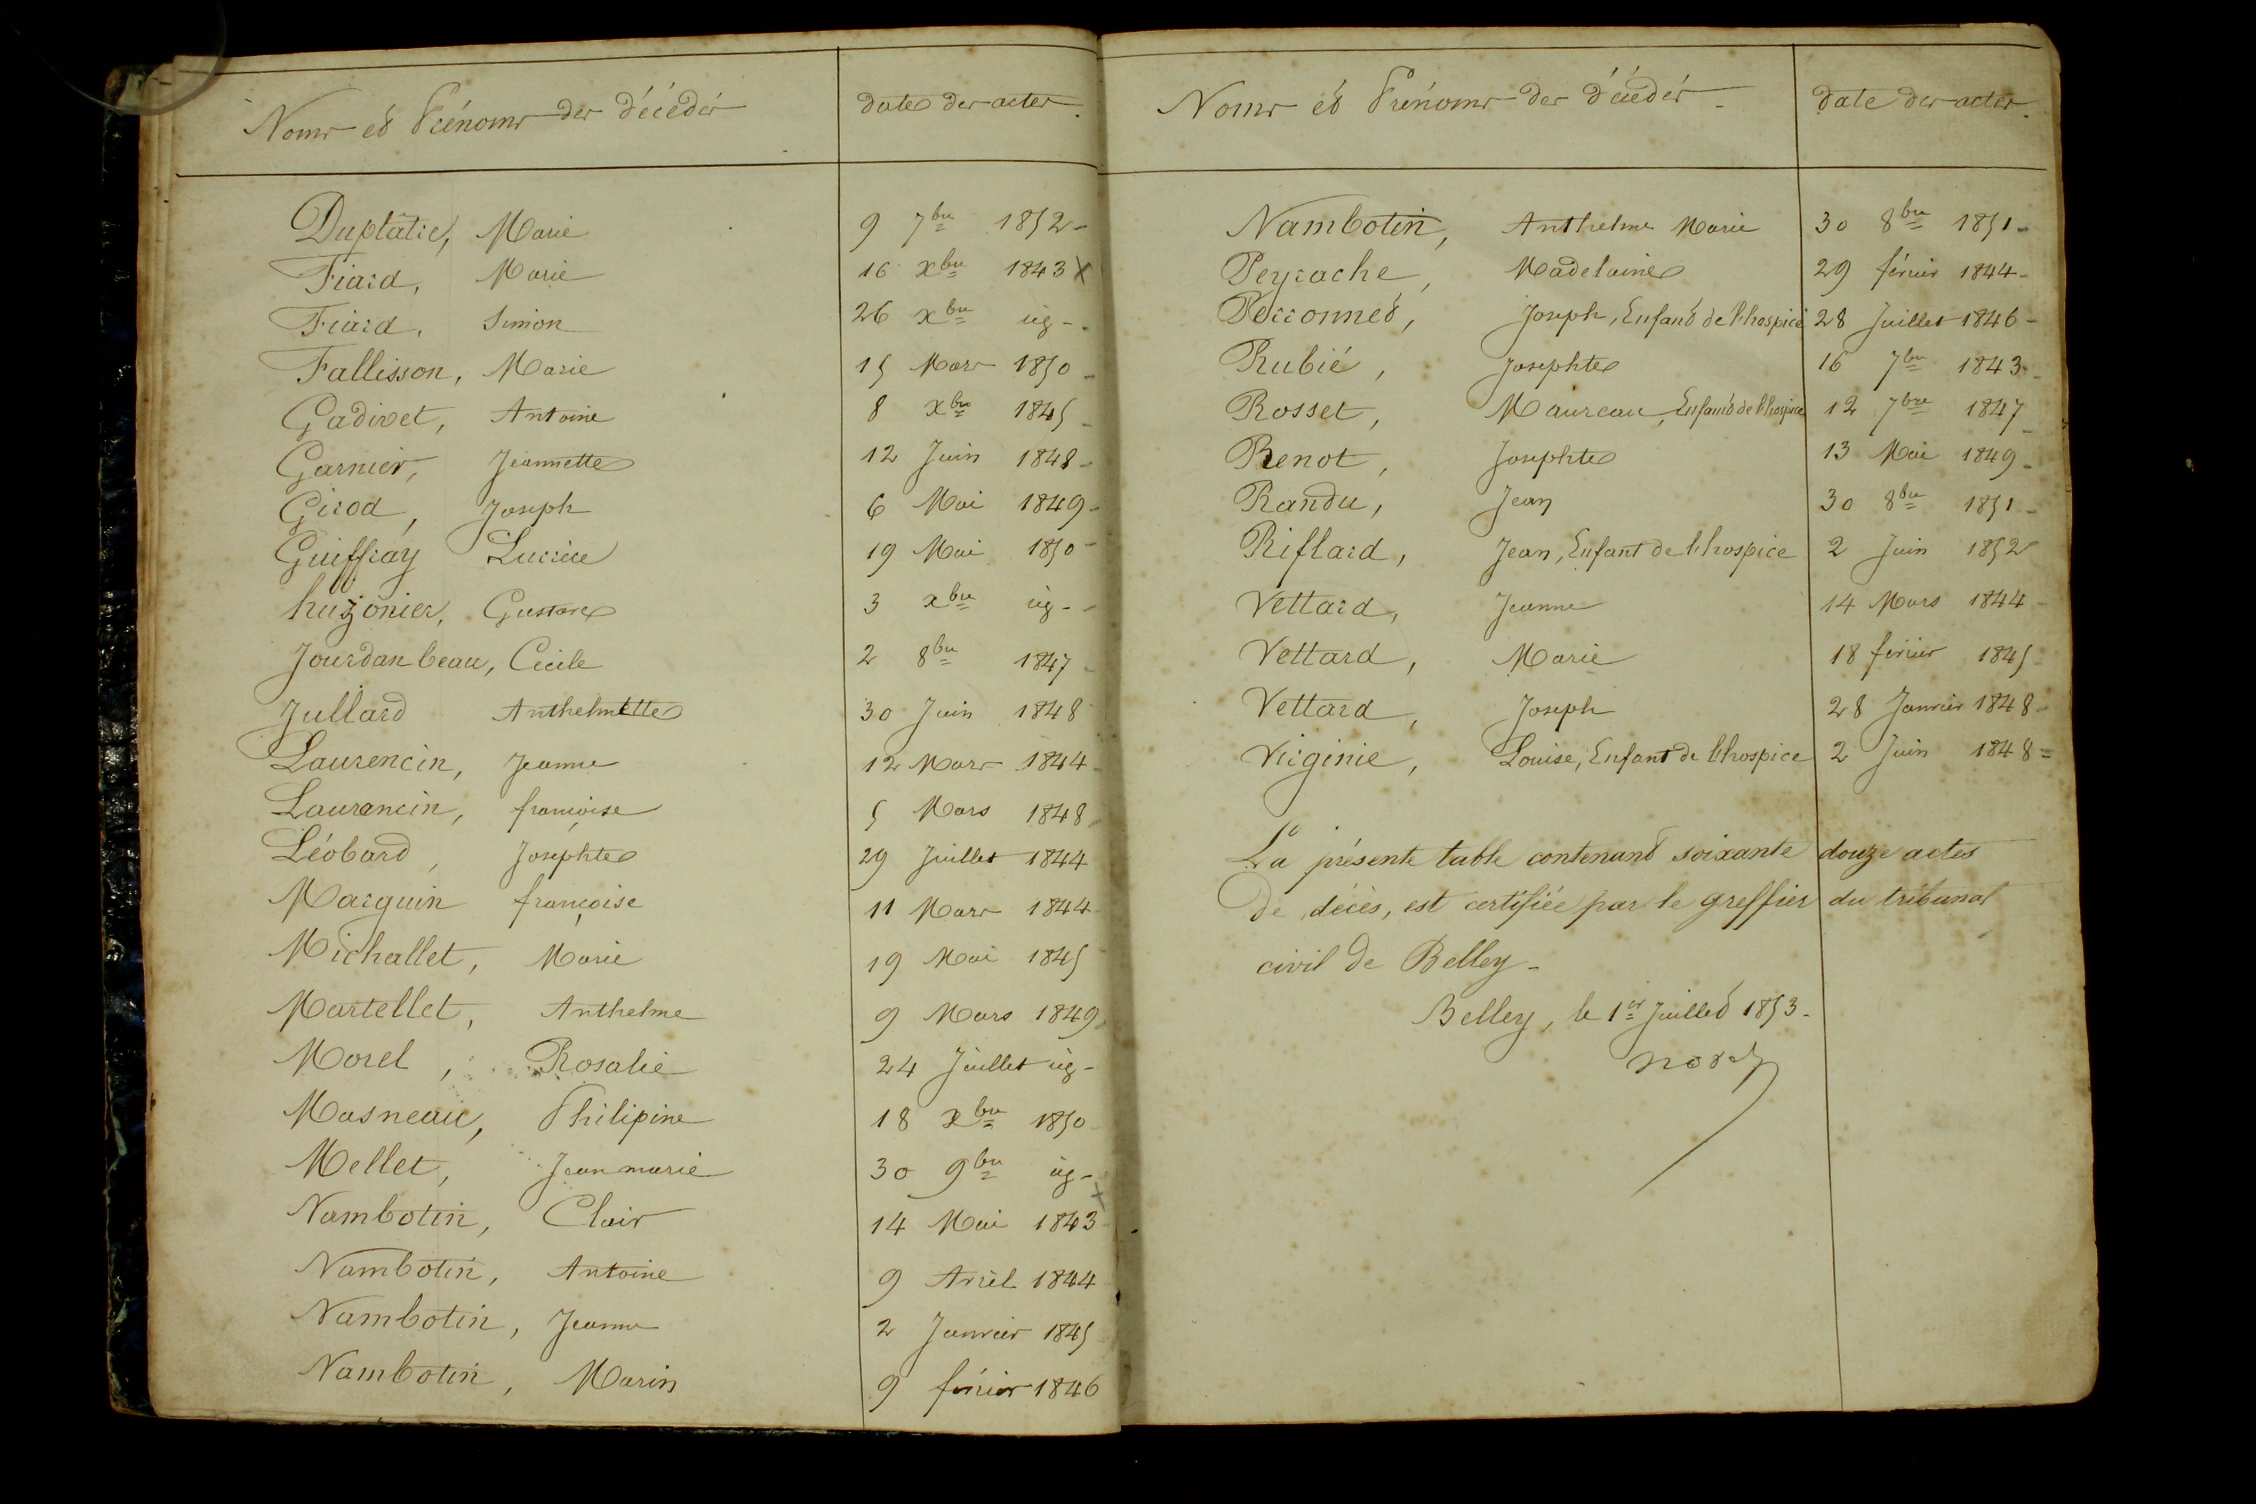 Noms et Prénoms des décédés
date des actes.
Duplâtre, Marie 9 7bre 1852-
Fiard, Marie 16 xbre 1843 x
Fiard, Simon 26 xbre id-.
Fallisson, Marie 15 Mars 1850-
Gadivet, Antoine 8 xbre 1845-
Garnier, Jeannette 12 Juin 1848-
Girod, Joseph 6 Mai 1849-
Guiffray Lucrèce 19 Mai 1850-
hugonier, Gustave 3 xbre id--
Jourdan beau, Cécile 2 8bre 1847-
Jullard Anthelmette 30 Juin 1848
Laurencin, Jeanne 12 Mars 1844-
Laurencin, françoise 5 Mars 1848
Léobard, Josephte 29 Juillet 1844
Marguin françoise 11 Mars 1844
Michallet, Marie 19 Mai 1845
Martellet, Anthelme 9 Mars 1849
Morel, Rosalie 24 Juillet id-
Masneau, Philipine 18 xbre 1850
Mellet, Jean marie 30 9bre id-
Nambotin, Clair 14 Mai 1843 x
Nambotin, Antoine 9 Avril 1844
Nambotin, Jeanne 2 Janvier 1845
Nambotin, Marin 9 février 1846
Noms et Prénoms des décédés-
date des actes.
Nambotin, Anthelme Marie 30 8bre 1851-
Peyrache, Madelaine 29 février 1844-
Perronnet, Joseph, Enfant de l'hospice 28 Juillet 1846-
Rubié, Josephte 16 7bre 1843-
Rosset, Maureau, Enfant de l'hospice 12 7bre 1847-
Renot, Josephte 13 Mai 1849-
Randu, Jean 30 8bre 1851-
Riflard, Jean, Enfant de l'hospice 2 Juin 1852
Vettard, Jeanne 14 Mars 1844
Vettard, Marie 18 février 1845-
Vettard, Joseph 28 Janvier 1848-
Virginie, Louise, Enfant de l'hospice 2 Juin 1848=
La présente table contenant soixante douze actes
De décès, est certifiée par le greffier du tribunal
civil de Belley-
Belley, le 1er Juillet 1853-